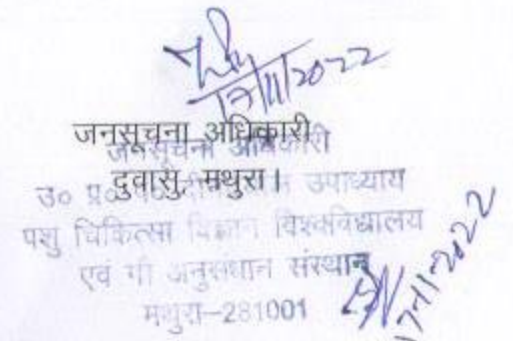 17/11/2022
जनसूचना अधिकारी
जनसूचना अधिकारी
दुवासु, मथुरा।
उ० प्र० पं० दीनदयाल उपाध्याय
पशु चिकित्सा विज्ञान विश्वविद्यालय
एवं गौ अनुसंधान संस्थान
मथुरा–281001
17-11-2022